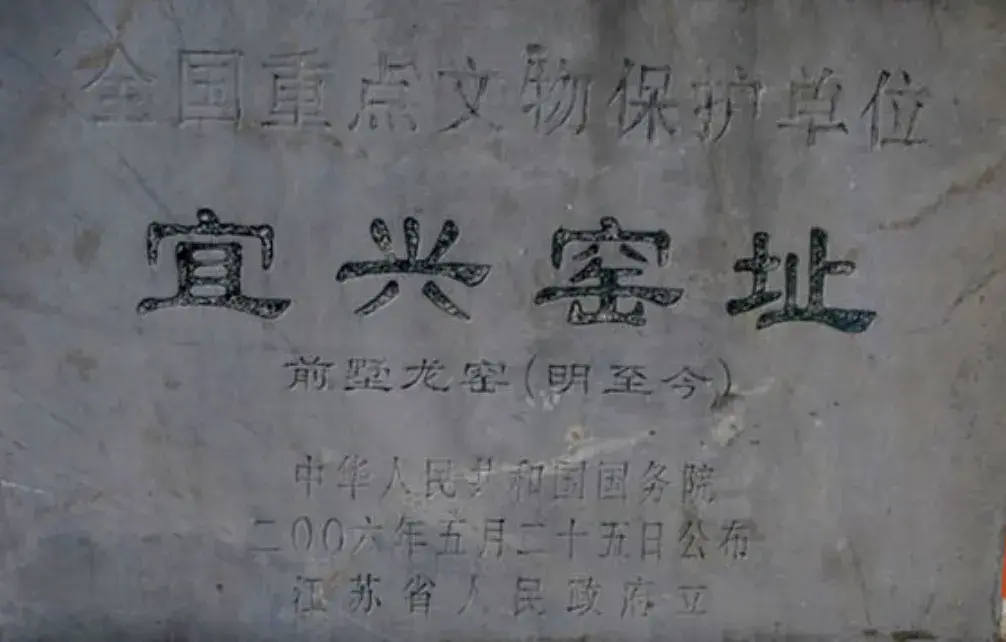 全国重点文物保护单位
宜兴窑址
前墅龙窑(明至今)
中华人民共和国国务院
二〇〇六年五月二十五日公布
江苏省人民政府立